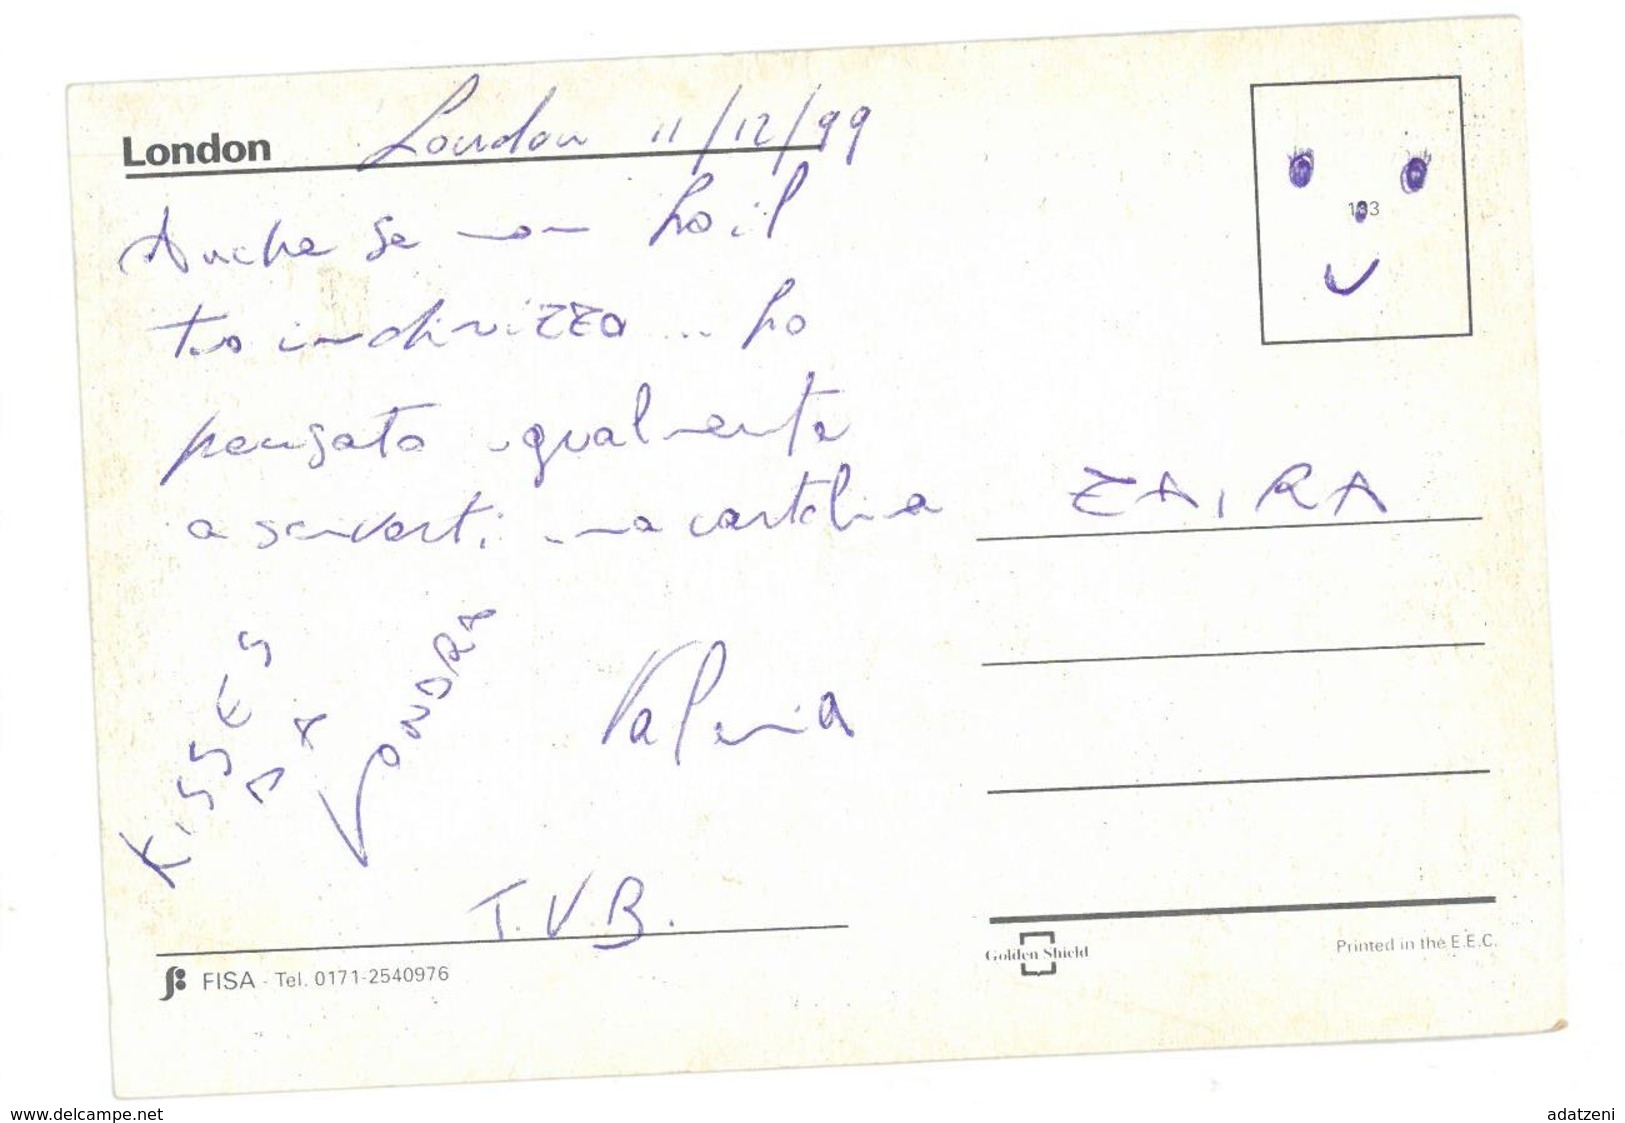 London
London 11/12/99
Anche se non ho il
tuo indirizzo ... ho
pensato ugualmente
a scriverti una cartolina
KISSES
DA
LONDRA
Valeria
T.V.B.
FISA - Tel. 0171-2540976
133
ZAIRA
Golden Shield
Printed in the E.E.C.
www.delcampe.net
adatzeni